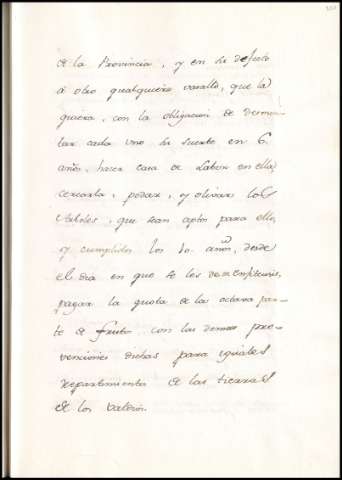 de la Provincia, y en su defecto
á otro qualquiera vasallo, que la
quiera, con la obligacion de desmon-
tar cada uno su suerte en 6.
años, hacer casa de Labor en ella,
cercarla, podar, y olivar los
Arboles, que sean aptos para ello,
y cumplidos los 10. años, desde
el dia en que se les dé en Emphiteusis,
pagar la quota de la octava par-
te de fruto con las demas pre-
venciones dichas para iguales
repartimientos de las tierras
de los valdios.